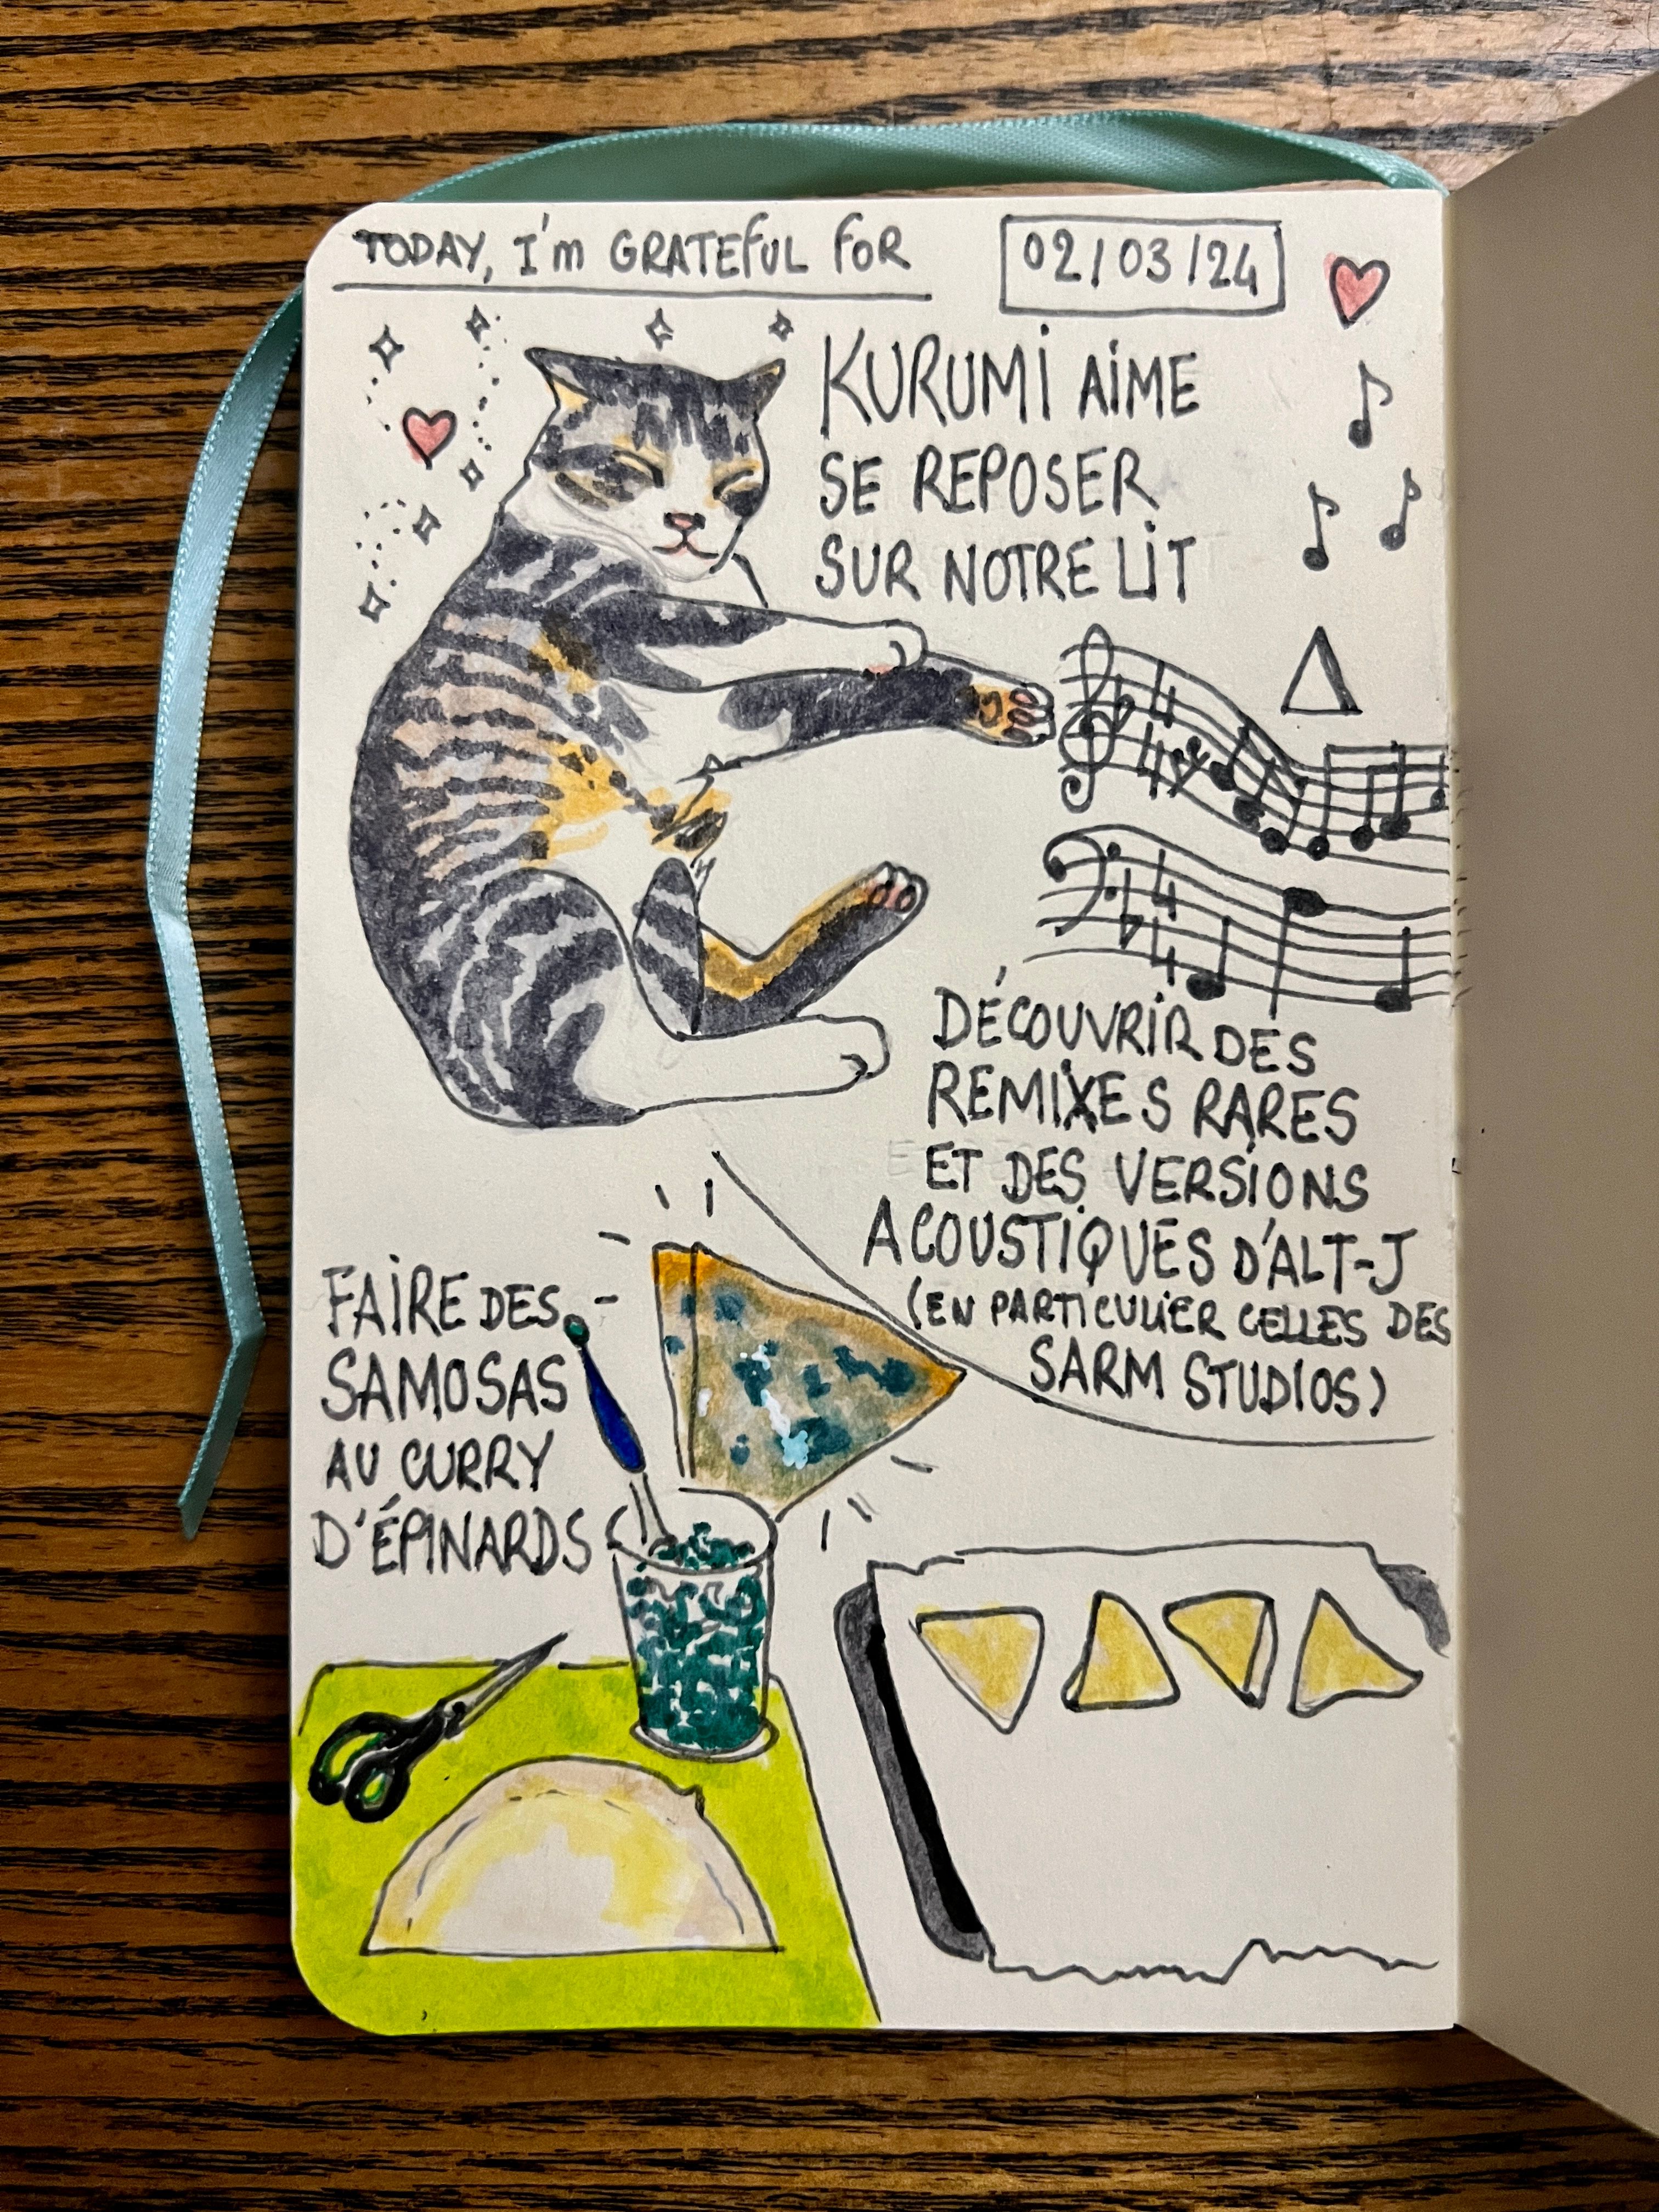 TODAY, I'm GRATEFUL FOR
02/03/24
KURUMI AIME
SE REPOSER
SUR NOTRE LIT
DÉCOUVRIR DES
REMIXES RARES
ET DES VERSIONS
ACOUSTIQUES D'ALT-J
(EN PARTICULIER CELLES DES
SARM STUDIOS)
FAIRE DES
SAMOSAS
AU CURRY
D'ÉPINARDS